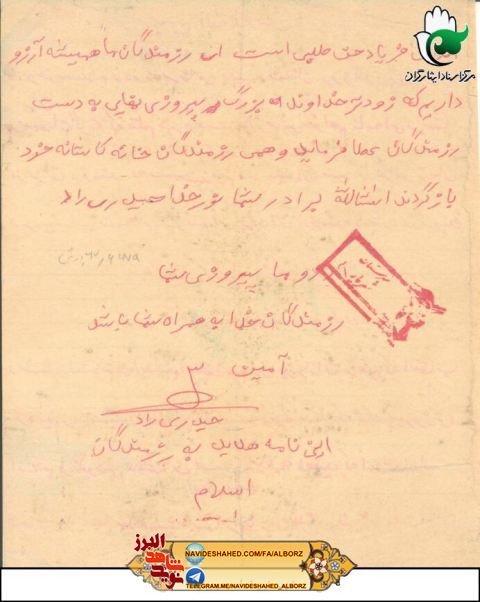 مرکز اسناد ایثارگران
این فریاد حق طلبی است از رزمندگان ما همیشه آرزو
داریم که زودتر خداوند بزرگ پیروزی نهایی به دست
رزمندگان عطا فرماید و همی رزمندگان خانه کاشانه خود
بازگردند انشاالله برادر شما نورخدا حیدری راد
آرزو ما پیروزی شما
رزمندگان خدا به همراه شما باشد
آمین
حیدری راد
این نامه هدیه به رزمندگان
اسلام
نوید شاهد البرز
NAVIDESHAHED.COM/FA/ALBORZ
TELEGRAM.ME/NAVIDESHAHED_ALBORZ